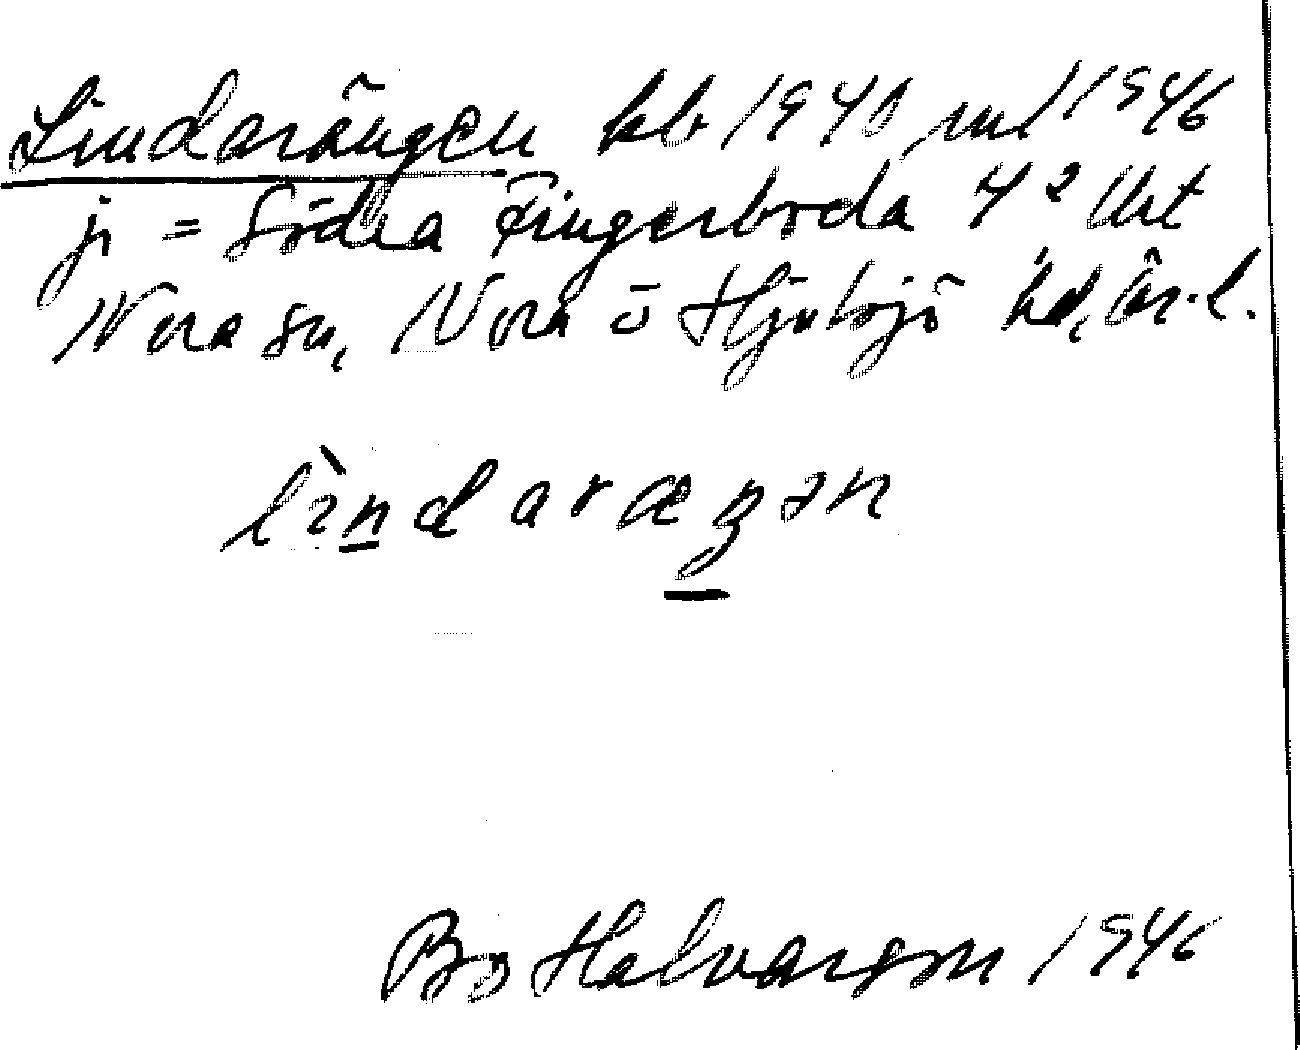 Lindarängen kb 1940, ml 1946
jr = Södra Fingerboda 4² Urt
Nora sn, Nora o Hjulsjö hd, Ör. l.
lìndaræŋən
Bo Halvarson 1946